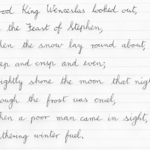 ood King Wenceslas looked out,
n the Feast of Stephen,
hen the snow lay round about,
ep and crisp and even;
rightly shone the moon that nigh
ough the frost was cruel,
hen a poor man came in sight,
athering winter fuel.